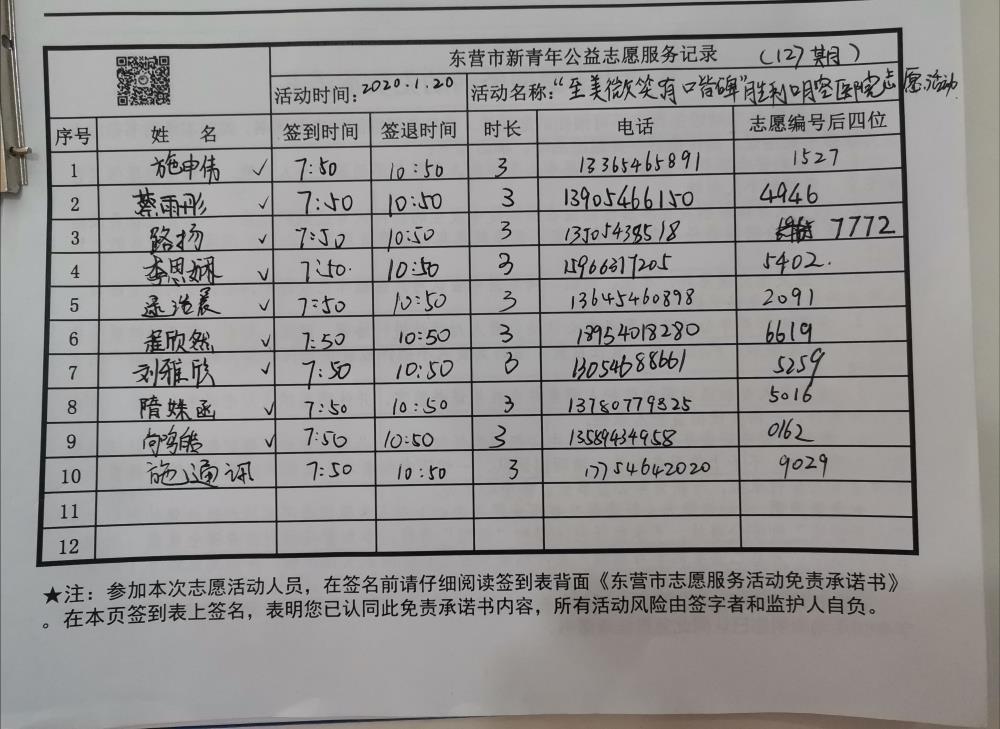 东营市新青年公益志愿服务记录 (127期)
活动时间: 2020.1.20 活动名称: “至美微笑有口皆碑”胜利口腔医院志愿活动.
序号 姓 名 签到时间 签退时间 时长 电话 志愿编号后四位
1 施申伟 ✓ 7:50 10:50 3 13365465891 1527
2 蔡雨彤 ✓ 7:50 10:50 3 13905466150 4946
3 路扬 ✓ 7:50 10:50 3 13505438518 7772
4 李思娴 ✓ 7:50. 10:50 3 15966317205 5402.
5 ✓ 7:50 10:50 3 13645460898 2091
6 程欣然 ✓ 7:50 10:50 3 18954018280 6619
7 刘雅欣 ✓ 7:50 10:50 3 13054688661 5259
8 隋姝函 ✓ 7:50 10:50 3 13780779825 5016
9 向鸣皓 ✓ 7:50 10:50 3 13589434958 0162
10 施通讯 7:50 10:50 3 17754642020 9029
11
12
★注：参加本次志愿活动人员，在签名前请仔细阅读签到表背面《东营市志愿服务活动免责承诺书》
。在本页签到表上签名，表明您已认同此免责承诺书内容，所有活动风险由签字者和监护人自负。